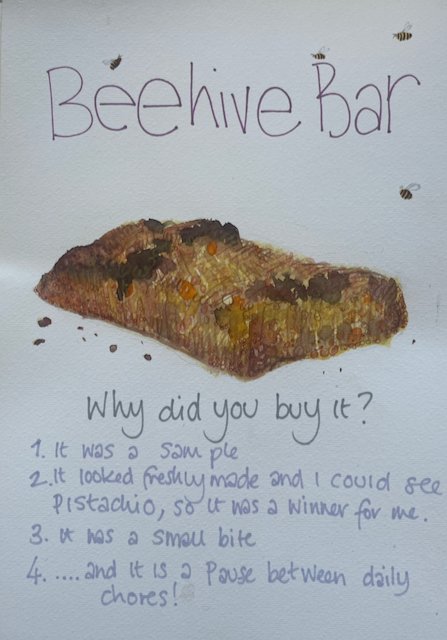 Beehive Bar
Why did you buy it?
1. It was a sample
2. It looked freshly made and I could see
Pistachio, so it was a winner for me.
3. It was a small bite
4. ....and it is a Pause between daily
chores!